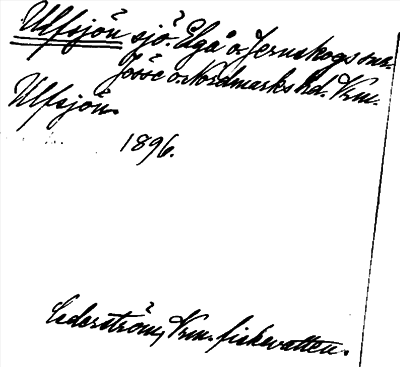 Ulfsjön sjö. Elga o. Jernskogs snr.
Jösse o. Nordmarks hd. Vrm.
Ulfsjön.
1896.
Cederström, Vrm. fiskevatten.